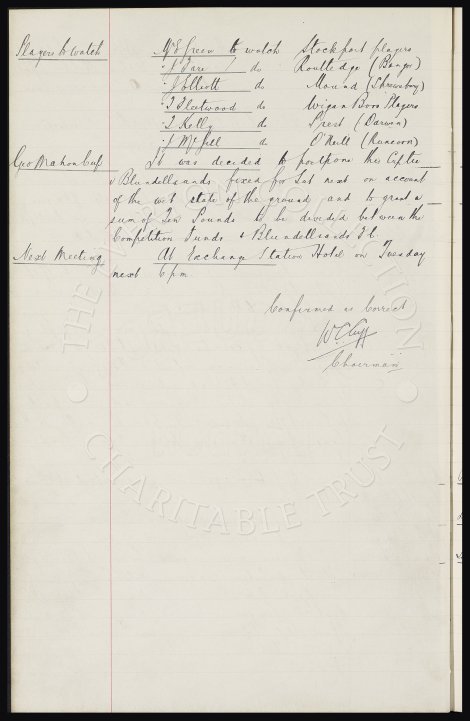 Players to watch Mr E Green to watch Stockport players
" J Fare / do Routledge (Bangor)
" J Elliott do Mound (Shrewsbury)
" T Fleetwood do Wigan Boro Players
" T Kelly do Prest (Darwen)
" J McGill do O'Neill (Runcorn)
Geo Mahon Cup It was decided to postpone this Cup tie
v Blundellsands fixed for Sat next on account
of the wet state of the ground and to grant a
sum of Ten Pounds to be divided between the
Competition Funds & Blundellsands F.C.
Next Meeting At Exchange Station Hotel on Tuesday
next 6 pm
Confirmed as Correct
W. C. Cuff
Chairman
CHARITABLE TRUST